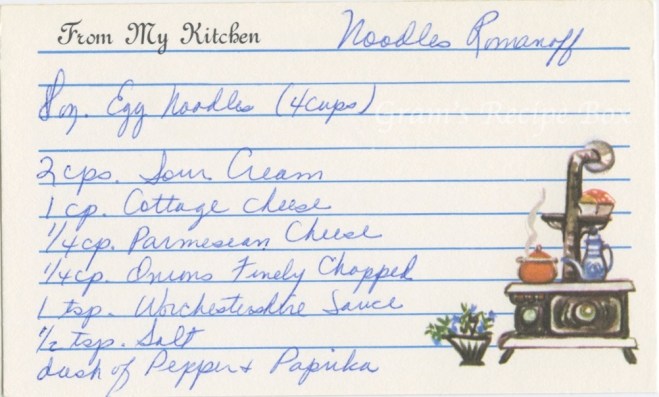 From My Kitchen Noodles Romanoff
8 oz. Egg Noodles (4 cups)
Gram's Recipe Box
2 cps. Sour Cream
1 cp. Cottage Cheese
1/4 cp. Parmesean Cheese
1/4 cp. Onions Finely Chopped
1 tsp. Worchestershire Sauce
1/2 tsp. Salt
dash of Pepper + Paprika